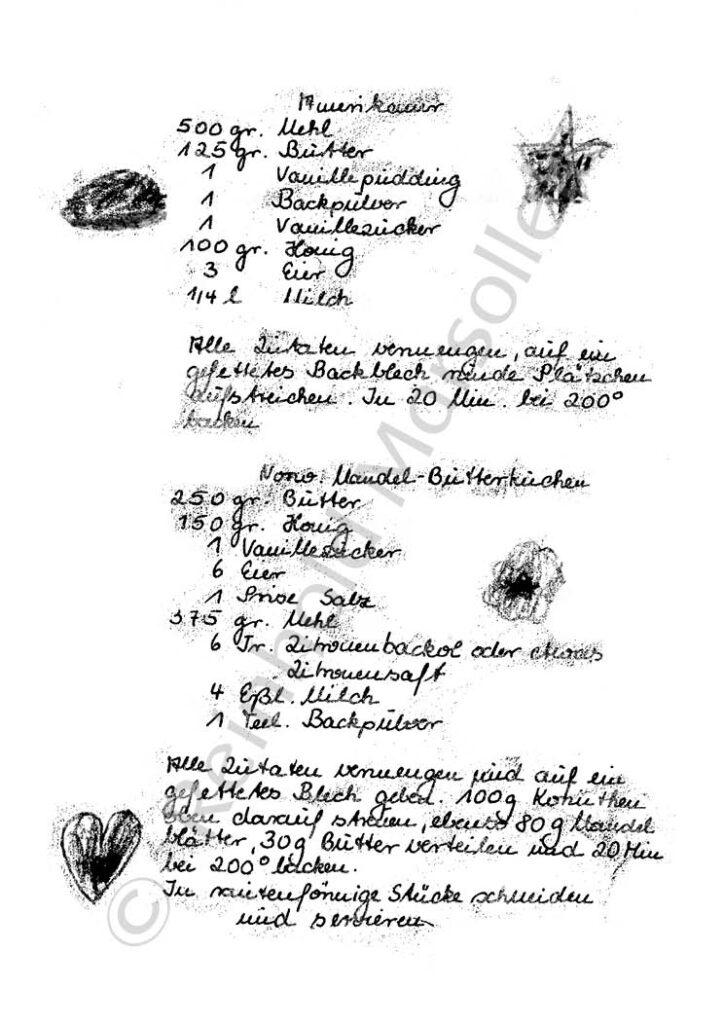 Amerikaner
500 gr. Mehl
125 gr. Butter
1 Vanillepudding
1 Backpulver
1 Vanillezucker
100 gr. Honig
3 Eier
1/4 l Milch
Alle Zutaten vermengen, auf ein
gefettetes Backblech runde Plätzchen
aufstreichen. In 20 Min. bei 200°
backen
Mandel-Butterkuchen
250 gr. Butter
150 gr. Honig
1 Vanillezucker
6 Eier
1 Prise Salz
375 gr. Mehl
6 Tr. Zitronenbacköl oder etwas
Zitronensaft
4 Eßl. Milch
1 Teel. Backpulver
Alle Zutaten vermengen und auf ein
gefettetes Blech geben. 100g Korinthen
oben darauf streuen, ebenso 80g Mandel
blätter, 30g Butter verteilen und 20 Min
bei 200° backen.
In rautenförmige Stücke schneiden
und servieren
© Reinhold Marsollek